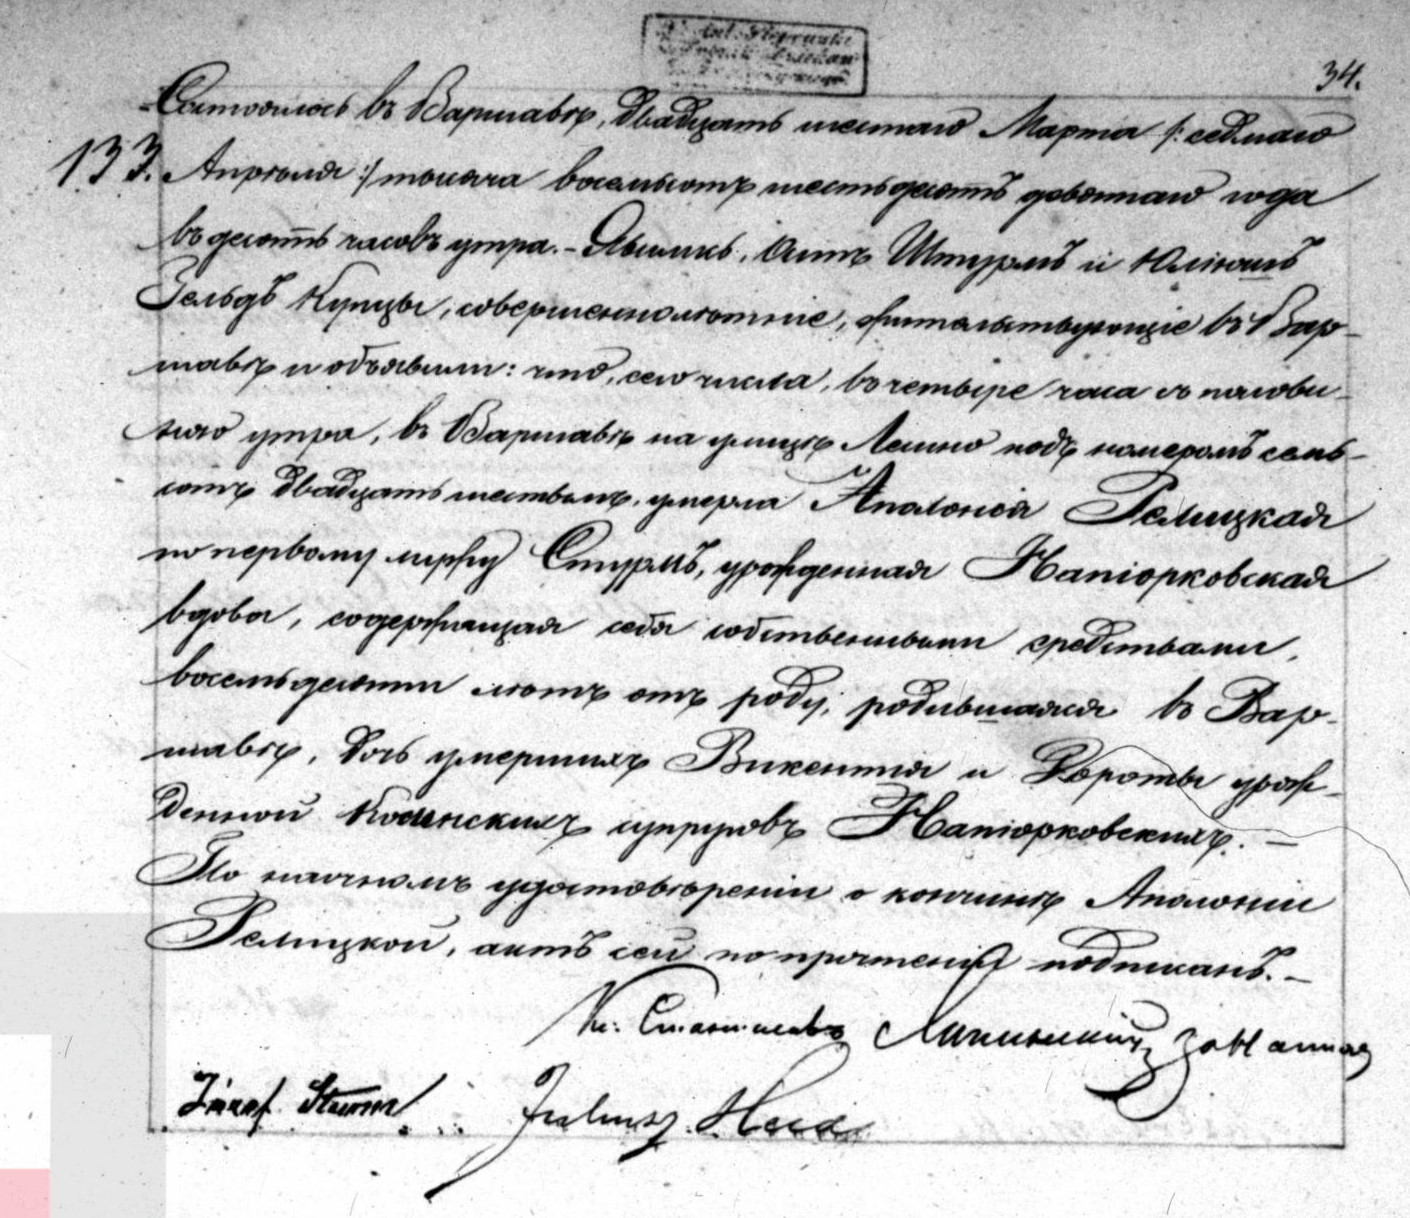 34.
Состоялось въ Варшавѣ, двадцать шестаго Марта /: седмаго
133. Апрѣля :/ тысяча восемьсотъ шестьдесятъ девятаго года
въ десять часовъ утра. - Явились, Штурмъ и Юліюшъ
Гельдъ Купцы, совершеннолѣтніе, жительствующіе въ Вар-
шавѣ и объявили: что, сего числа, въ четыре часа съ полови-
ною утра, въ Варшавѣ на улицѣ Лешно подъ номеромъ семь-
сотъ двадцать шестымъ, умерла Аполонія Релицкая
по первому мужу Стурмъ, урожденная Напіорковская
вдова, содержащая себя собственными средствами,
восемьдесяти лѣтъ отъ роду, родившаяся въ Вар-
шавѣ, дочь умершихъ Викентія и Дороты урож-
денной супруговъ Напіорковскихъ. -
По наочномъ удостовѣреніи о кончинѣ Аполоніи
Релицкой, актъ сей по прочтеніи подписанъ. -
Кс. Станиславъ
Józef Sturm Juliusz